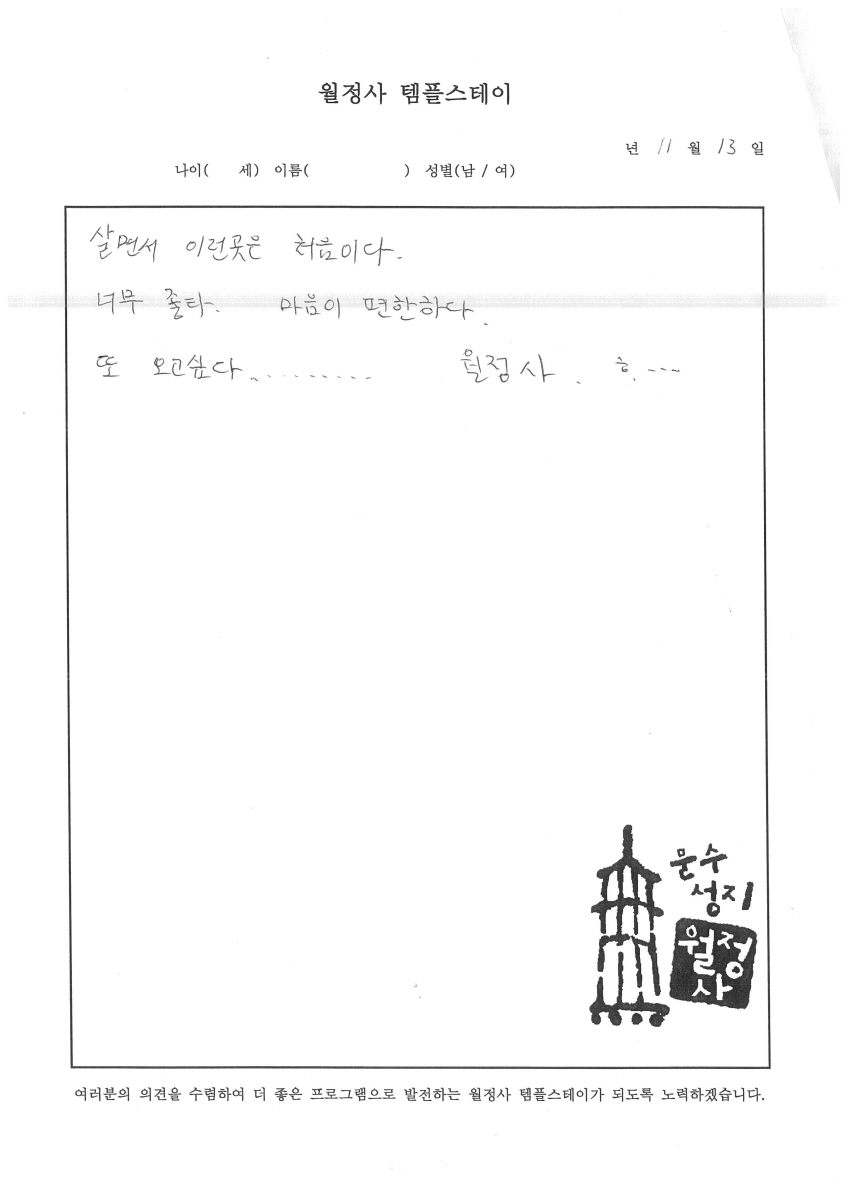 월정사 템플스테이
년 11 월 13 일
나이( 세) 이름( ) 성별(남 / 여)
살면서 이런곳은 처음이다.
너무 좋타. 마음이 편한하다.
또 오고싶다.......... 월정사. 흐....
문수
성지
월정
사
여러분의 의견을 수렴하여 더 좋은 프로그램으로 발전하는 월정사 템플스테이가 되도록 노력하겠습니다.